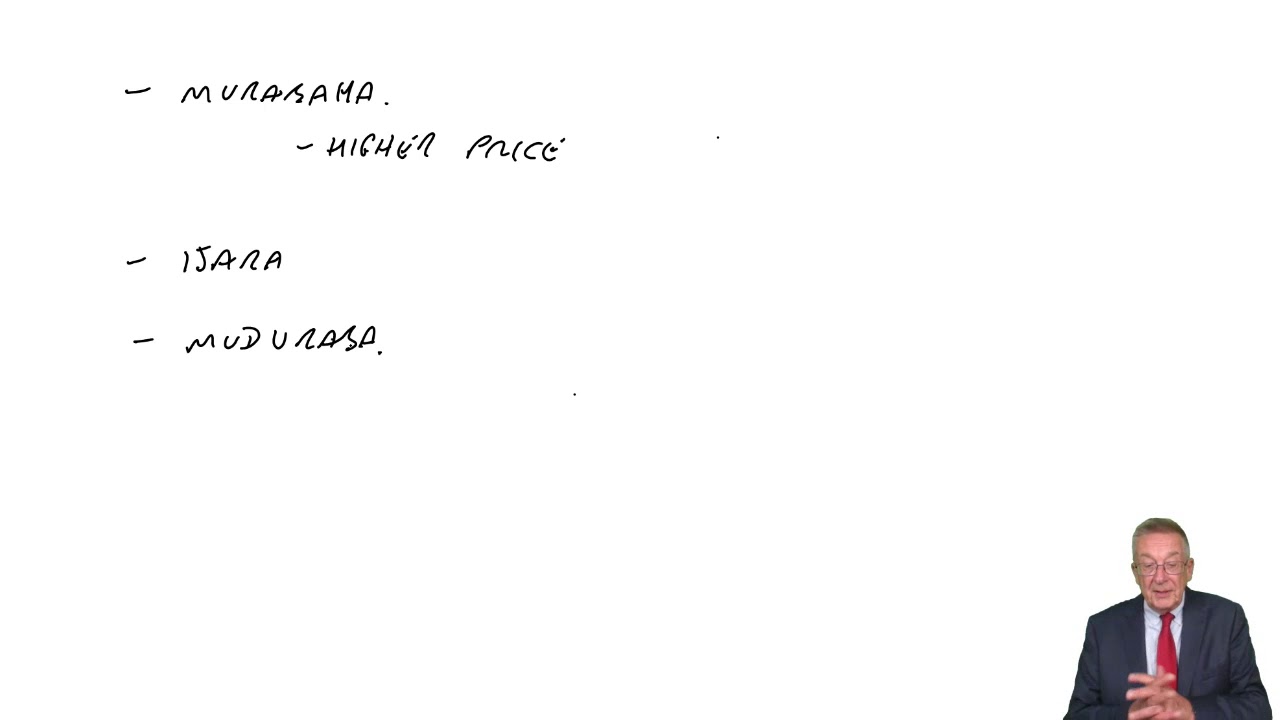 - MURABAHA.
- HIGHER PRICE
- IJARA
- MUDURABA.